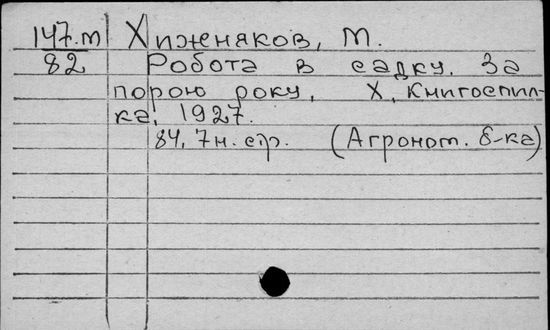 147.м Хижняков, М.
82 Робота в садку. За
порою року. Х. Книгоспіл-
ка, 1927.
84, 7н. стр. (Агроном. б-ка)